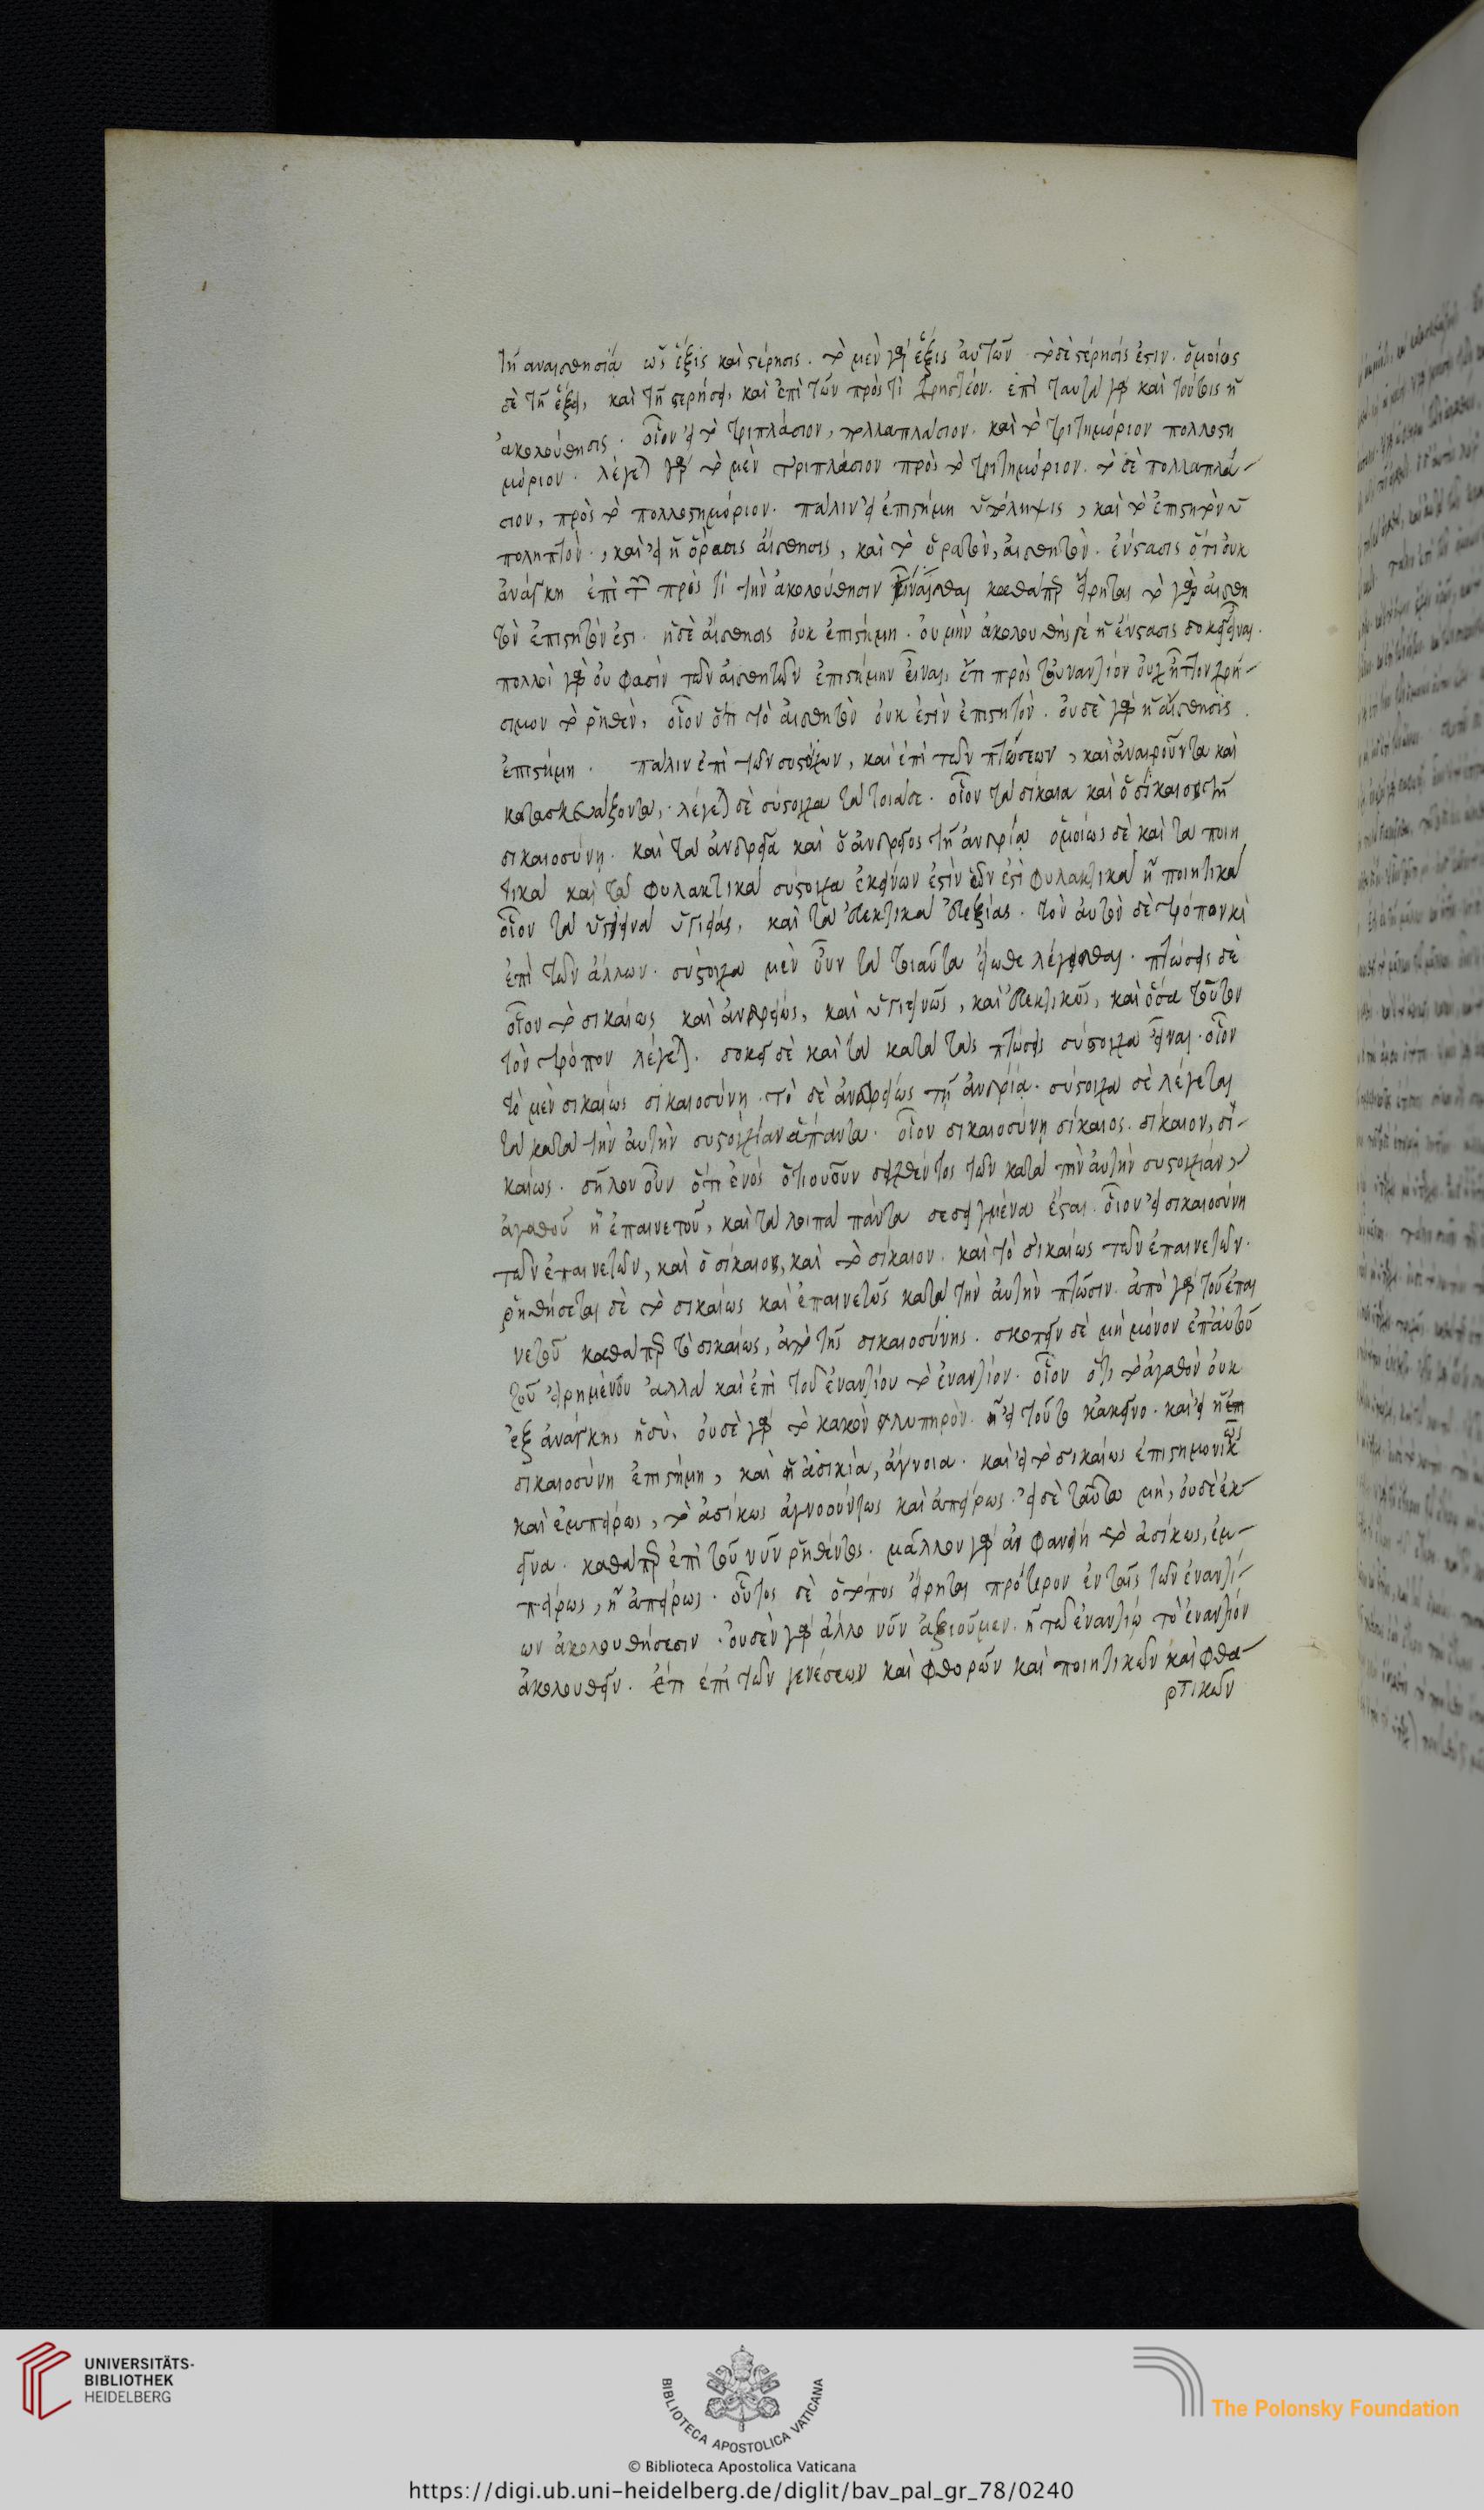 τῆ ἀναισθησία ὡς ἕξις καὶ στέρησις. τὸ μὲν γὰρ ἕξις αὐτῶν τὸ δὲ στέρησίς ἐστιν. ὁμοίως
δὲ τῆ ἕξει, καὶ τῆ στερήσει, καὶ ἐπὶ τῶν πρός τι χρηστέον. ἐπὶ ταυτὰ γὰρ καὶ τούτοις ἡ
ἀκολούθησις. οἷον εἰ τὸ τριπλάσιον, πολλαπλάσιον. καὶ τὸ τριτημόριον πολλοστη
μόριον. λέγεται γὰρ τὸ μὲν τριπλάσιον πρὸς τὸ τριτημόριον. τὸ δὲ πολλαπλά-
σιον, πρὸς τὸ πολλοστημόριον. πάλιν εἰ ἐπιστήμη ὑπόληψις, καὶ τὸ ἐπιστητὸν ὑ
ποληπτὸν., καὶ εἰ ἡ ὅρασις αἴσθησις, καὶ τὸ ὁρατὸν, αἰσθητὸν. ἔνστασις ὅτι οὐκ
ἀνάγκη ἐπὶ τῶν πρός τι τὴν ἀκολούθησιν γίνεσθαι καθάπερ εἴρηται τὸ γὰρ αἰσθη
τὸν ἐπιστητόν ἐστι. ἡ δὲ αἴσθησις οὐκ ἐπιστήμη. οὐ μὴν ἀληθής γε ἡ ἔνστασις δοκεῖ εἶναι.
πολλοὶ γὰρ οὔ φασὶν τῶν αἰσθητῶν ἐπιστήμην εἶναι, ἔτι πρὸς τοὐναντίον οὐχ ἧττον χρή-
σιμον τὸ ῥηθὲν, οἷον ὅτι τὸ αἰσθητὸν οὐκ ἐστὶν ἐπιστητόν. οὐδὲ γὰρ ἡ αἴσθησις
ἐπιστήμη. πάλιν ἐπὶ τῶν συστοίχων, καὶ ἐπὶ τῶν πτώσεων, καὶ ἀναιροῦντα καὶ
κατασκευάζοντα,. λέγεται δὲ σύστοιχα τὰ τοιάδε. οἷον τὰ δίκαια καὶ ὁ δίκαιος τῆ
δικαιοσύνη. καὶ τὰ ἀνδρεῖα καὶ ὁ ἀνδρεῖος τῆ ἀνδρία ὁμοίως δὲ καὶ τὰ ποιη
τικὰ καὶ τὰ φυλακτικὰ σύστοιχα ἐκείνων ἐστὶν ὧν ἐστὶ φυλακτικὰ ἢ ποιητικὰ
οἷον τὰ ὑγιεινὰ ὑγιείας, καὶ τὰ εὐεκτικὰ εὐεξίας. τὸν αὐτὸν δὲ τρόπον καὶ
ἐπὶ τῶν ἄλλων. σύστοιχα μὲν οὖν τὰ τοιαῦτα εἴωθε λέγεσθαι. πτώσεις δὲ
οἷον τὸ δικαίως καὶ ἀνδρείως, καὶ ὑγιεινῶς, καὶ εὐεκτικῶς, καὶ ὅσα τοῦτον
τὸν τρόπον λέγεται. δοκεῖ δὲ καὶ τὰ κατὰ τὰς πτώσεις σύστοιχα εἶναι. οἷον
τὸ μὲν δικαίως δικαιοσύνη. τὸ δὲ ἀνδρείως τῆ ἀνδρία. σύστοιχα δὲ λέγεται
τὰ κατὰ τὴν αὐτὴν συστοιχίαν ἅπαντα. οἷον δικαιοσύνη δίκαιος. δίκαιον, δι-
καίως. δῆλον οὖν ὅτι ἑνὸς ὁτιουοῦν δειχθέντος τῶν κατὰ τὴν αὐτὴν συστοιχίαν,
ἀγαθοῦ ἢ ἐπαινετοῦ, καὶ τὰ λοιπὰ πάντα δεδειγμένα ἔσται. οἷον εἰ δικαιοσύνη
τῶν ἐπαινετῶν, καὶ ὁ δίκαιος, καὶ τὸ δίκαιον. καὶ τὸ δικαίως τῶν ἐπαινετῶν.
ῥηθήσεται δὲ τὸ δικαίως καὶ ἐπαινετῶς κατὰ τὴν αὐτὴν πτῶσιν. ἀπὸ γὰρ τοῦ ἐπαι
νετοῦ καθάπερ τὸ δικαίως, ἀπὸ τῆς δικαιοσύνης. σκοπεῖν δὲ μὴ μόνον ἐπ' αὐτοῦ
τοῦ εἰρημένου ἀλλὰ καὶ ἐπὶ τοῦ ἐναντίου τὸ ἐναντίον. οἷον ὅτι τὸ ἀγαθὸν οὐκ
ἐξ ἀνάγκης ἡδύ. οὐδὲ γὰρ τὸ κακὸν λυπηρὸν. ἢ εἰ τοῦτο κἀκεῖνο. καὶ εἰ ἡ
δικαιοσύνη ἐπιστήμη, καὶ ἡ ἀδικία, ἄγνοια. καὶ εἰ τὸ δικαίως ἐπιστημονικῶς
καὶ ἐμπείρως, τὸ ἀδίκως ἀγνοούντως καὶ ἀπείρως. εἰ δὲ ταῦτα μὴ, οὐδὲ ἐκ-
εῖνα. καθάπερ ἐπὶ τοῦ νῦν ῥηθέντος. μᾶλλον γὰρ ἂν φανείη τὸ ἀδίκως, ἐμ-
πείρως, ἢ ἀπείρως. οὗτος δὲ ὁ τόπος εἴρηται πρότερον ἐν ταῖς τῶν ἐναντί-
ων ἀκολουθήσεσιν. οὐδὲν γὰρ ἄλλο νῦν ἀξιοῦμεν. ἢ τῶ ἐναντίω τὸ ἐναντίον
ἀκολουθεῖν. ἔτι ἐπὶ τῶν γενέσεων καὶ φθορῶν καὶ ποιητικῶν καὶ φθα-
ρτικῶν
UNIVERSITÄTS-
BIBLIOTHEK
HEIDELBERG
BIBLIOTECA APOSTOLICA VATICANA
The Polonsky Foundation
© Biblioteca Apostolica Vaticana
https://digi.ub.uni-heidelberg.de/diglit/bav_pal_gr_78/0240